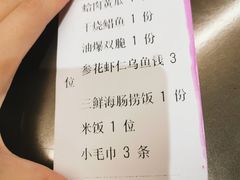 蛤肉黄瓜 1 份
干烧鲳鱼 1 份
油爆双脆 1 份
参花虾仁乌鱼钱 3
位
三鲜海肠捞饭 1 份
米饭 1 位
小毛巾 3 条